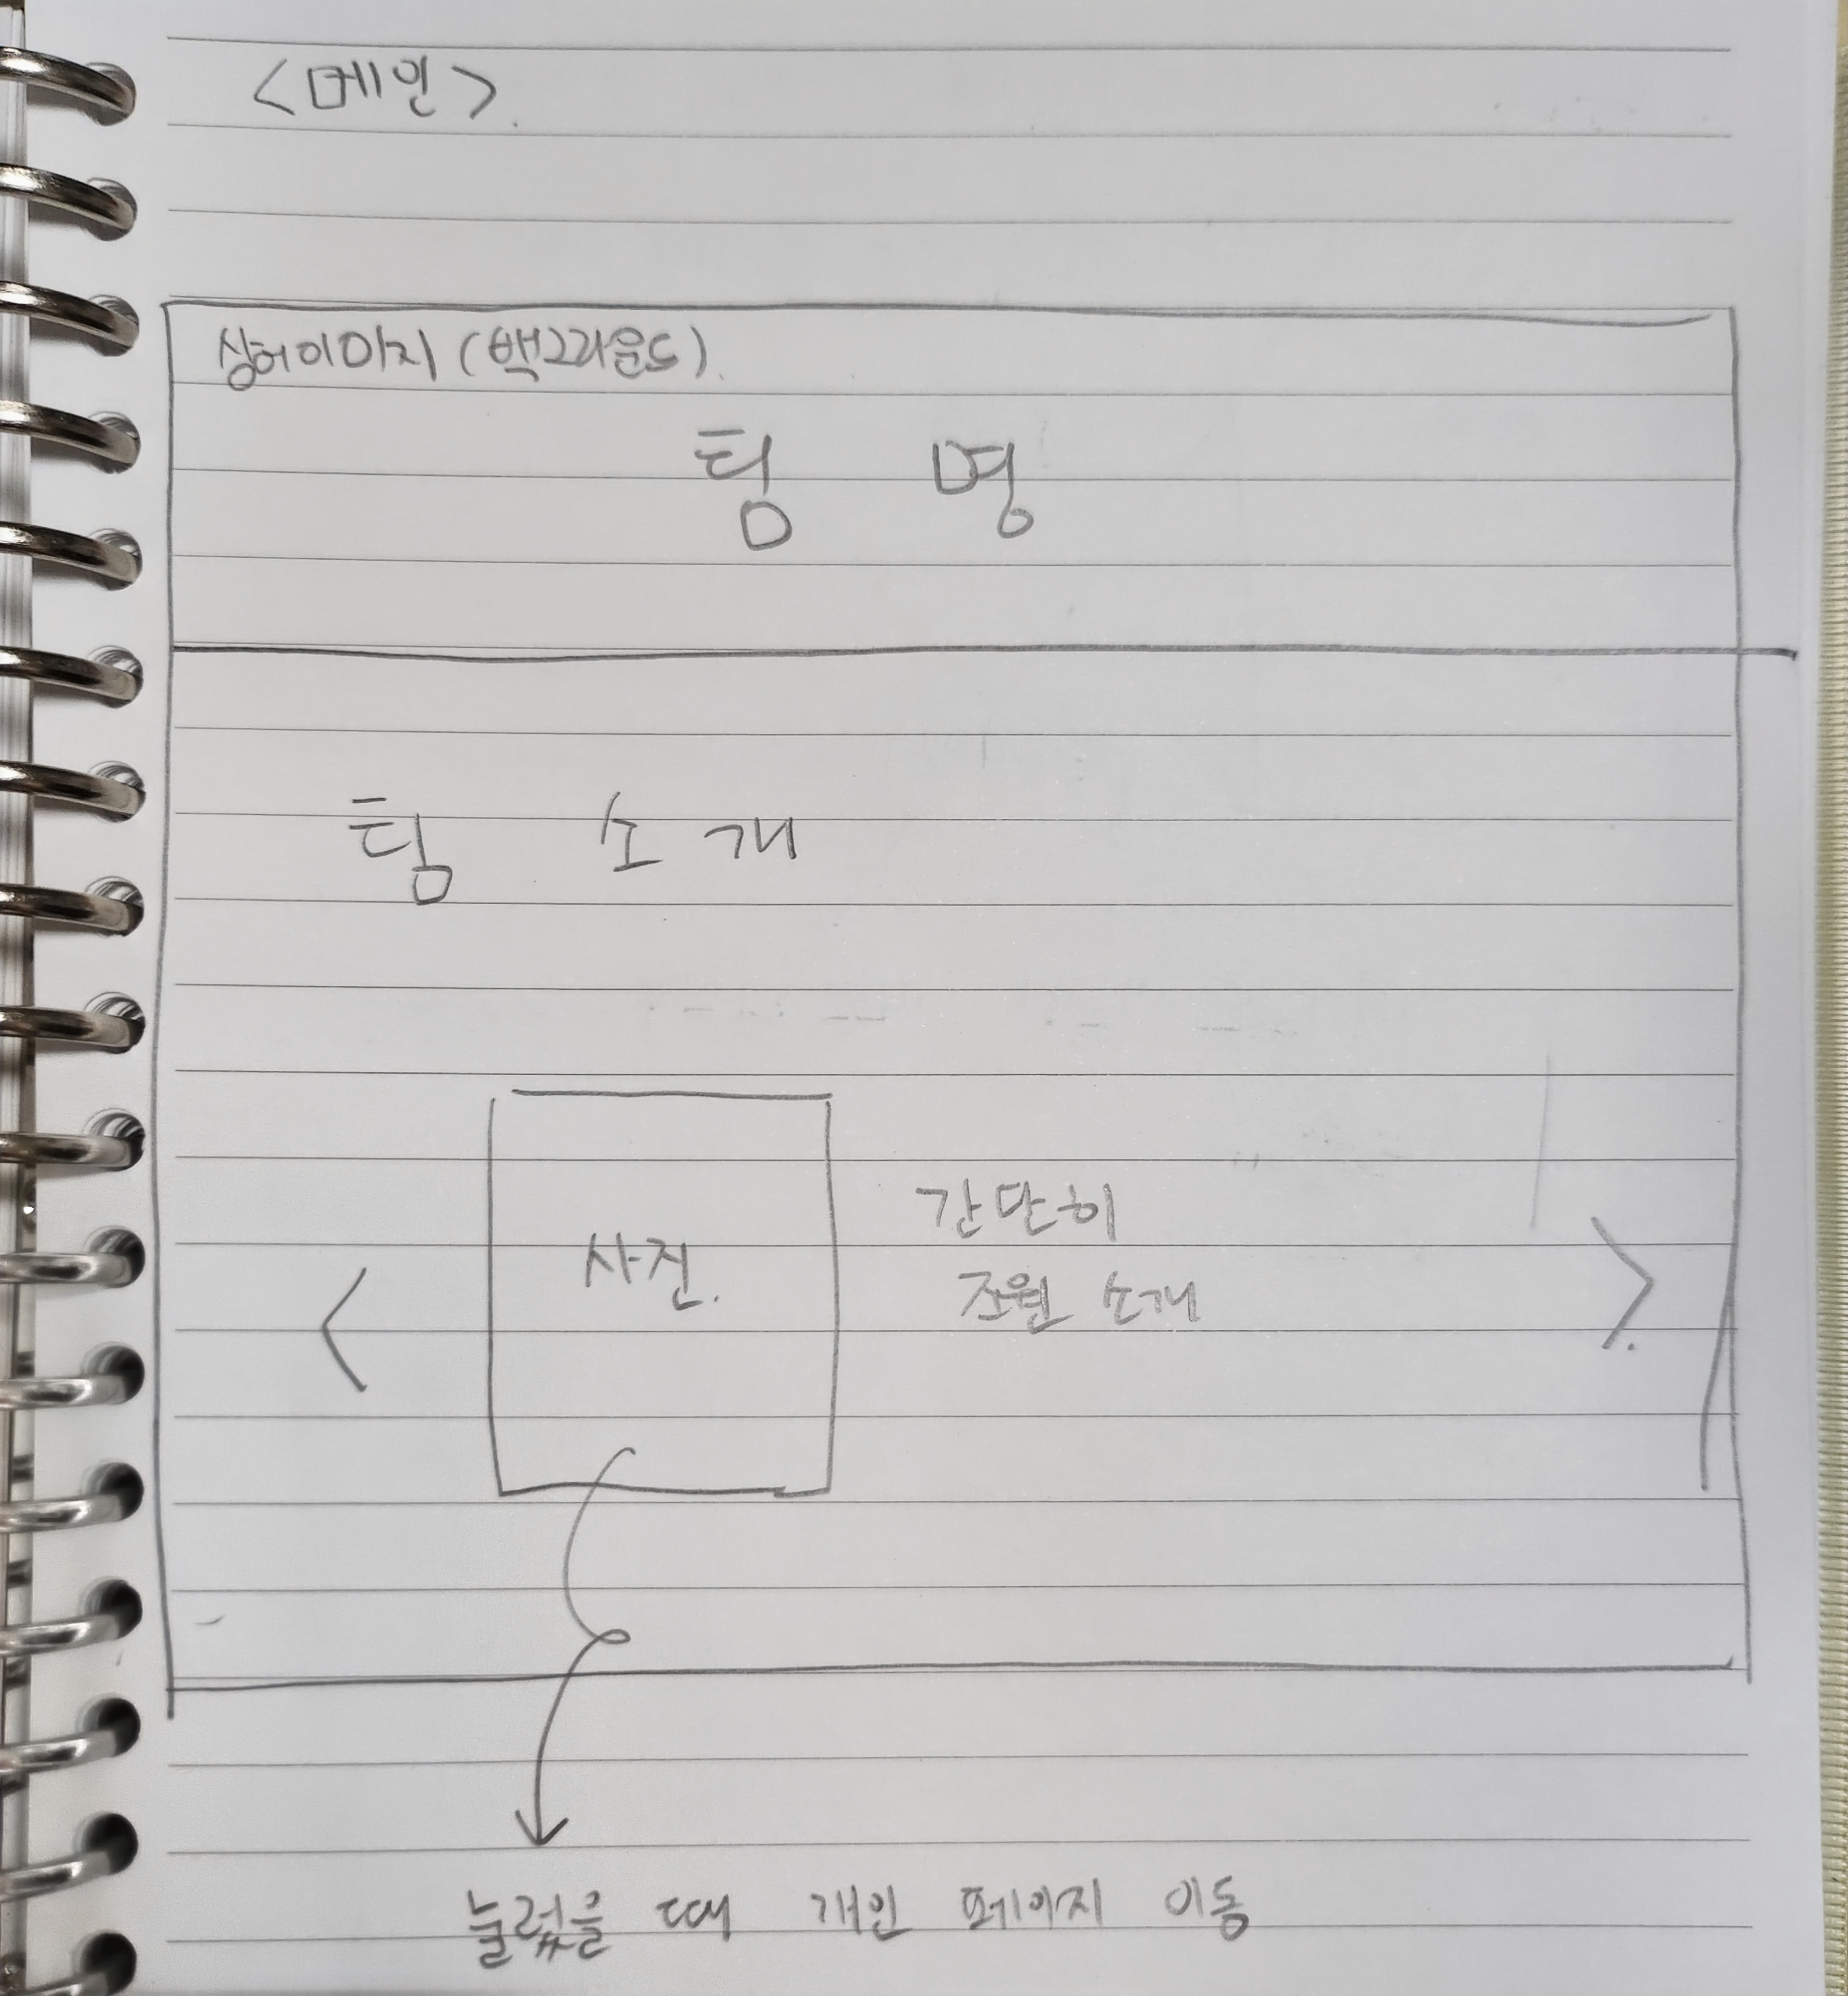 <메인>
상어이미지 (백그라운드)
팀 명
팀 소개
사진.
간단히
조원 소개
< >
눌렀을 때 개인 페이지 이동